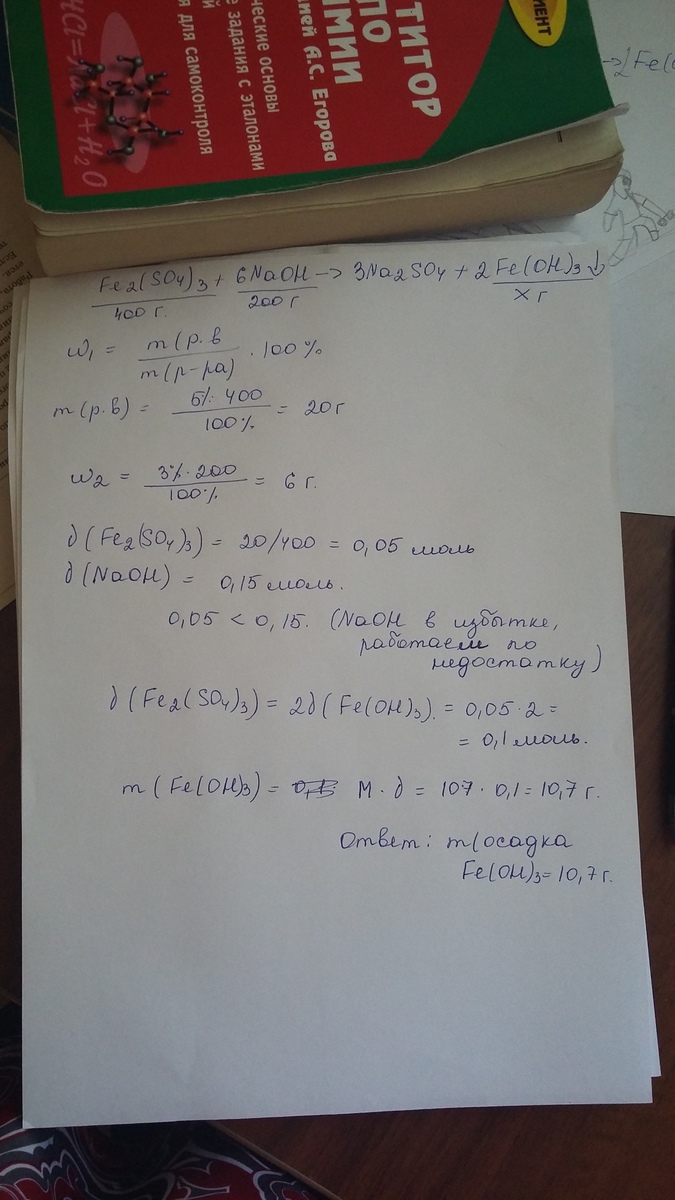 ТИТОР
ПО
ИМИИ
цией А.С. Егорова
ческие основы
е задания с эталонами
я для самоконтроля
МЕНТ
+ H2O
→2Fe(
Fe2(SO4)3 + 6NaOH → 3Na2SO4 + 2Fe(OH)3↓
400 г. 200 г x г
ω1 = m(р.в / m(р-ра) · 100%
m(р.в) = 5% · 400 / 100% = 20 г
ω2 = 3% · 200 / 100% = 6 г.
∂(Fe2(SO4)3) = 20/400 = 0,05 моль
∂(NaOH) = 0,15 моль.
0,05 < 0,15. (NaOH в избытке,
работаем по
недостатку)
∂(Fe2(SO4)3) = 2∂(Fe(OH)3). = 0,05 · 2 =
= 0,1 моль.
m(Fe(OH)3) = M · ∂ = 107 · 0,1 = 10,7 г.
Ответ: m(осадка
Fe(OH)3 = 10,7 г.